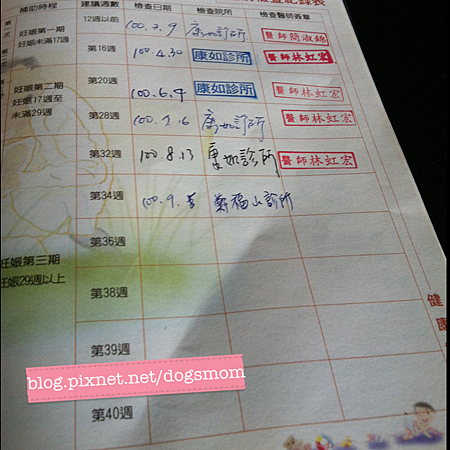 補助時程 建議週數 檢查日期 檢查院所 檢查醫師簽章
妊娠第一期
妊娠未滿17週
12週以前 100.3.9 康如診所 醫師簡淑錦
第16週 100.4.30 康如診所 醫師林虹宏
妊娠第二期
妊娠17週至
未滿29週
第20週 100.6.4 康如診所 醫師林虹宏
第28週 康如診所 醫師林虹宏
第32週 100.8.13 康如診所 醫師林虹宏
第34週 100.9. 鄭福山診所
妊娠第三期
妊娠29週以上
第36週
第38週
第39週
第40週
健
康
blog.pixnet.net/dogsmom